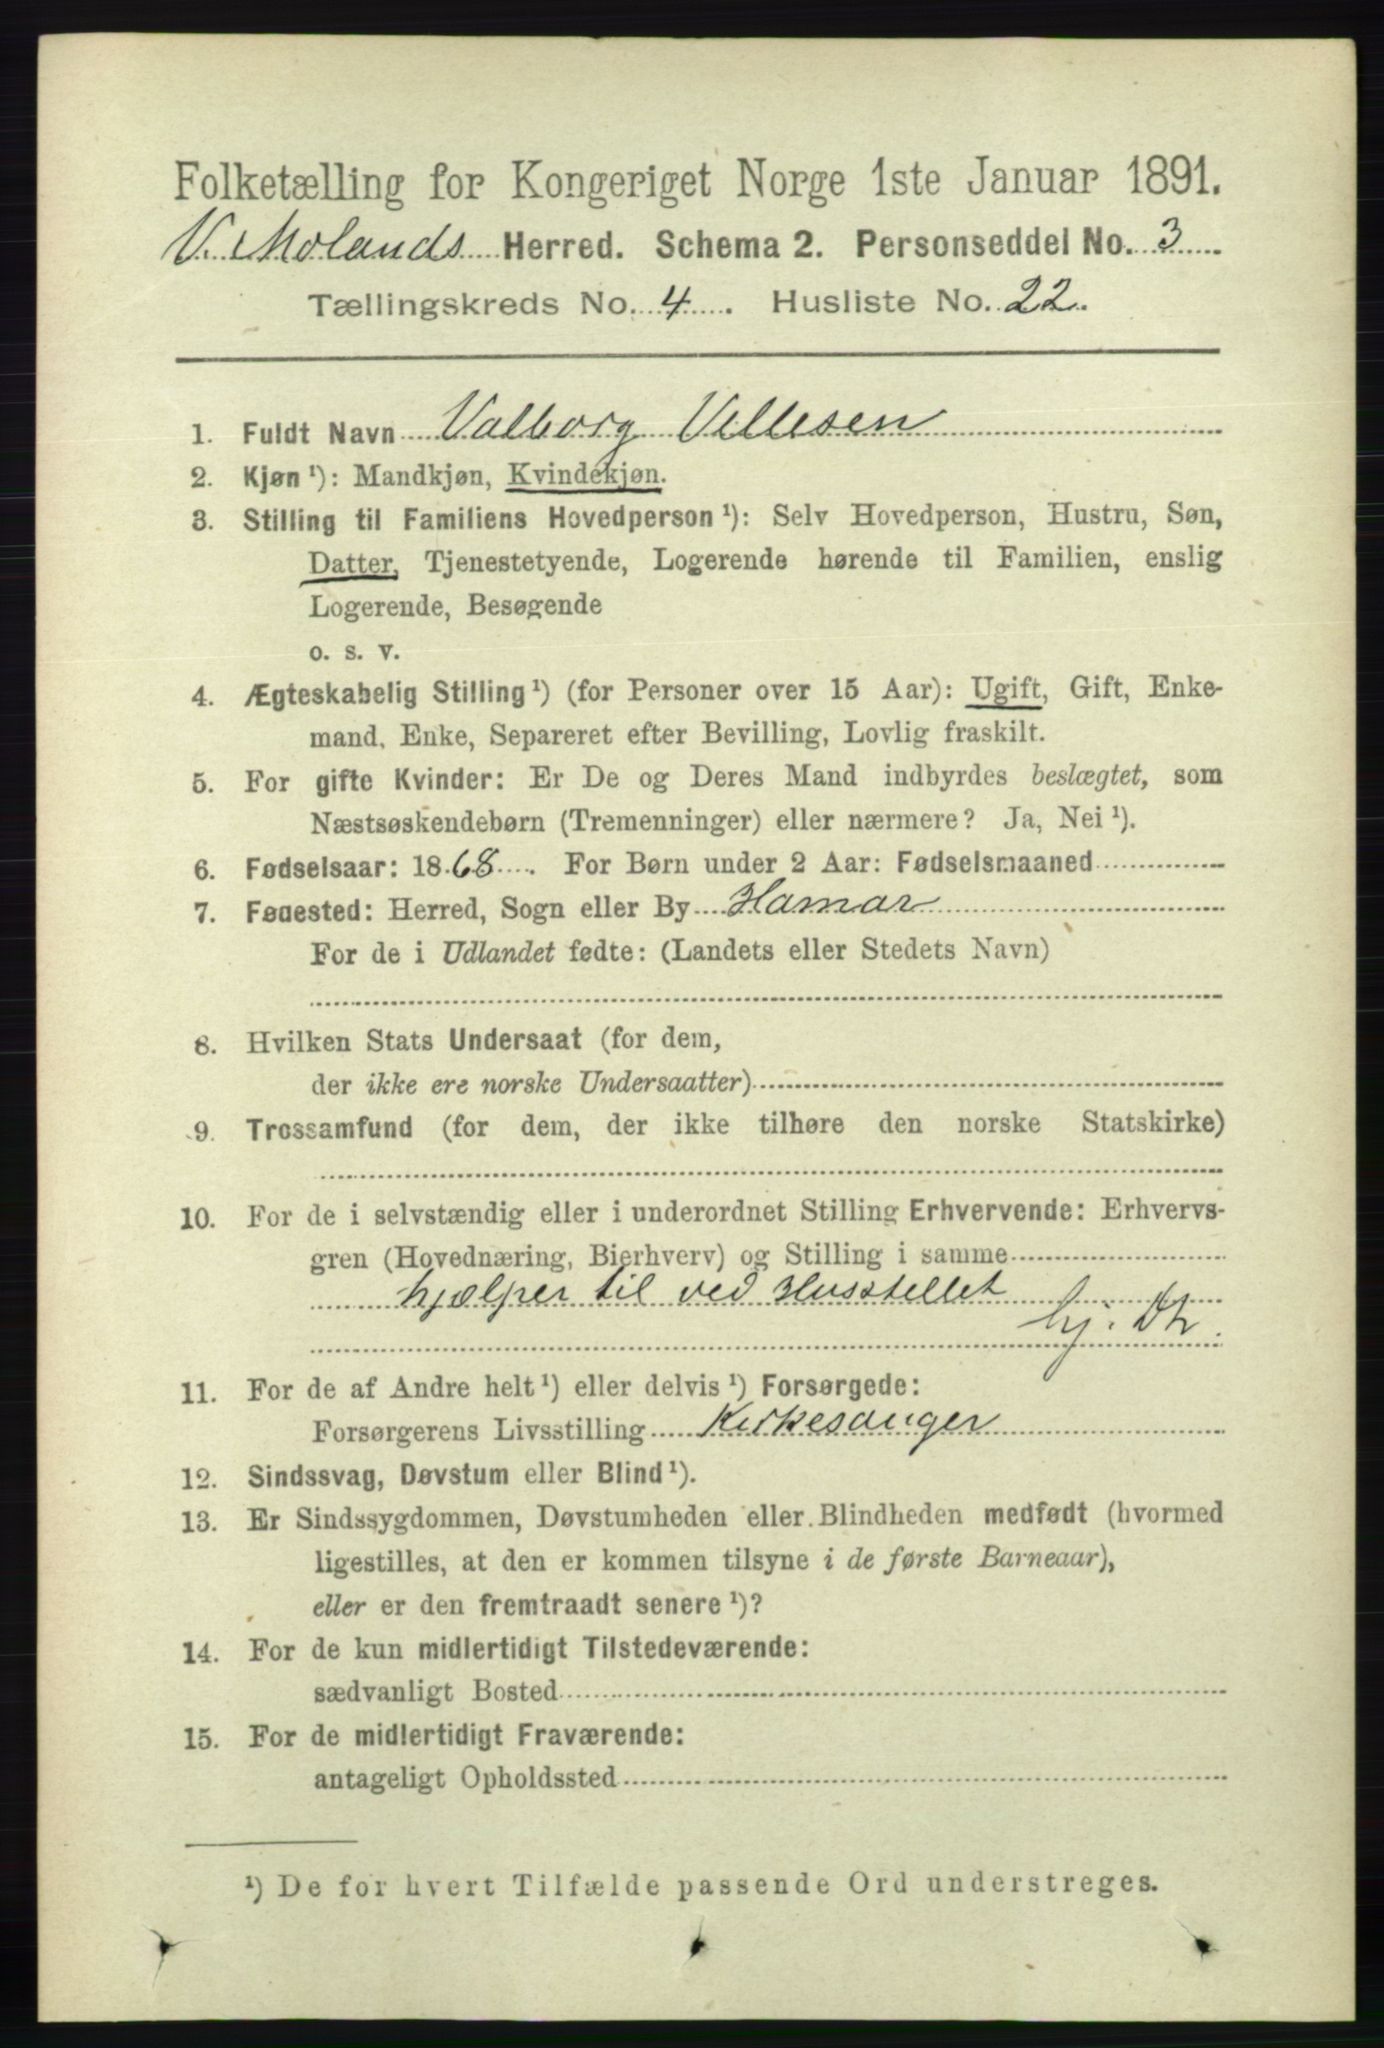 Folketælling for Kongeriget Norge 1ste Januar 1891.
V. Molands Herred. Schema 2. Personseddel No. 3
Tællingskreds No. 4. Husliste No. 22.
1. Fuldt Navn Valborg Vellesen
2. Kjøn ¹): Mandkjøn, Kvindekjøn.
3. Stilling til Familiens Hovedperson ¹): Selv Hovedperson, Hustru, Søn,
Datter, Tjenestetyende, Logerende hørende til Familien, enslig
Logerende, Besøgende
o. s. v.
4. Ægteskabelig Stilling ¹) (for Personer over 15 Aar): Ugift, Gift, Enke-
mand, Enke, Separeret efter Bevilling, Lovlig fraskilt.
5. For gifte Kvinder: Er De og Deres Mand indbyrdes beslægtet, som
Næstsøskendebørn (Tremenninger) eller nærmere? Ja, Nei ¹).
6. Fødselsaar: 1868. For Børn under 2 Aar: Fødselsmaaned
7. Fødested: Herred, Sogn eller By Hamar
For de i Udlandet fødte: (Landets eller Stedets Navn)
8. Hvilken Stats Undersaat (for dem,
der ikke ere norske Undersaatter)
9. Trossamfund (for dem, der ikke tilhøre den norske Statskirke)
10. For de i selvstændig eller i underordnet Stilling Erhvervende: Erhvervs-
gren (Hovednæring, Bierhverv) og Stilling i samme
hjælper til ved Husstellet
hj. Dt.
11. For de af Andre helt ¹) eller delvis ¹) Forsørgede:
Forsørgerens Livsstilling Kirkesanger
12. Sindssvag, Døvstum eller Blind ¹).
13. Er Sindssygdommen, Døvstumheden eller Blindheden medfødt (hvormed
ligestilles, at den er kommen tilsyne i de første Barneaar),
eller er den fremtraadt senere ¹)?
14. For de kun midlertidigt Tilstedeværende:
sædvanligt Bosted
15. For de midlertidigt Fraværende:
antageligt Opholdssted
¹) De for hvert Tilfælde passende Ord understreges.